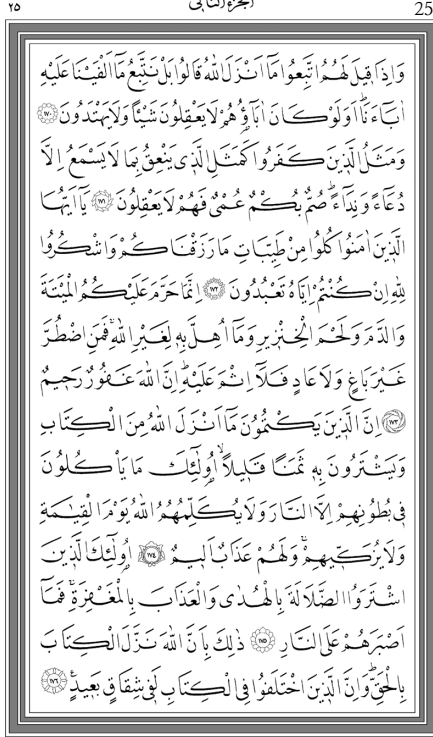 ٢٥ الجزء الثانى 25
وَاِذَا قٖيلَ لَهُمُ اتَّبِعُوا مَٓا اَنْزَلَ اللّٰهُ قَالُوا بَلْ نَتَّبِعُ مَٓا اَلْفَيْنَا عَلَيْهِ
اٰبَٓاءَنَاؕ اَوَلَوْ كَانَ اٰبَٓاؤُ۬هُمْ لَا يَعْقِلُونَ شَيْـًٔا وَلَا يَهْتَدُونَ ﴿١٧٠﴾
وَمَثَلُ الَّذٖينَ كَفَرُوا كَمَثَلِ الَّذٖى يَنْعِقُ بِمَا لَا يَسْمَعُ اِلَّا
دُعَٓاءً وَنِدَٓاءًؕ صُمٌّ بُكْمٌ عُمْىٌ فَهُمْ لَا يَعْقِلُونَ ﴿١٧١﴾ يَٓا اَيُّهَا
الَّذٖينَ اٰمَنُوا كُلُوا مِنْ طَيِّبَاتِ مَا رَزَقْنَاكُمْ وَاشْكُرُوا
لِلّٰهِ اِنْ كُنْتُمْ اِيَّاهُ تَعْبُدُونَ ﴿١٧٢﴾ اِنَّمَا حَرَّمَ عَلَيْكُمُ الْمَيْتَةَ
وَالدَّمَ وَلَحْمَ الْخِنْزٖيرِ وَمَٓا اُهِلَّ بِهٖ لِغَيْرِ اللّٰهِۚ فَمَنِ اضْطُرَّ
غَيْرَ بَاغٍ وَلَا عَادٍ فَلَٓا اِثْمَ عَلَيْهِؕ اِنَّ اللّٰهَ غَفُورٌ رَحٖيمٌ
﴿١٧٣﴾ اِنَّ الَّذٖينَ يَكْتُمُونَ مَٓا اَنْزَلَ اللّٰهُ مِنَ الْكِتَابِ
وَيَشْتَرُونَ بِهٖ ثَمَنًا قَلٖيلًاۙ اُو۬لٰٓئِكَ مَا يَاْكُلُونَ
فٖى بُطُونِهِمْ اِلَّا النَّارَ وَلَا يُكَلِّمُهُمُ اللّٰهُ يَوْمَ الْقِيٰمَةِ
وَلَا يُزَكّٖيهِمْۚ وَلَهُمْ عَذَابٌ اَلٖيمٌ ﴿١٧٤﴾ اُو۬لٰٓئِكَ الَّذٖينَ
اشْتَرَوُا الضَّلَالَةَ بِالْهُدٰى وَالْعَذَابَ بِالْمَغْفِرَةِۚ فَمَٓا
اَصْبَرَهُمْ عَلَى النَّارِ ﴿١٧٥﴾ ذٰلِكَ بِاَنَّ اللّٰهَ نَزَّلَ الْكِتَابَ
بِالْحَقِّؕ وَاِنَّ الَّذٖينَ اخْتَلَفُوا فِى الْكِتَابِ لَفٖى شِقَاقٍ بَعٖيدٍ ﴿١٧٦﴾